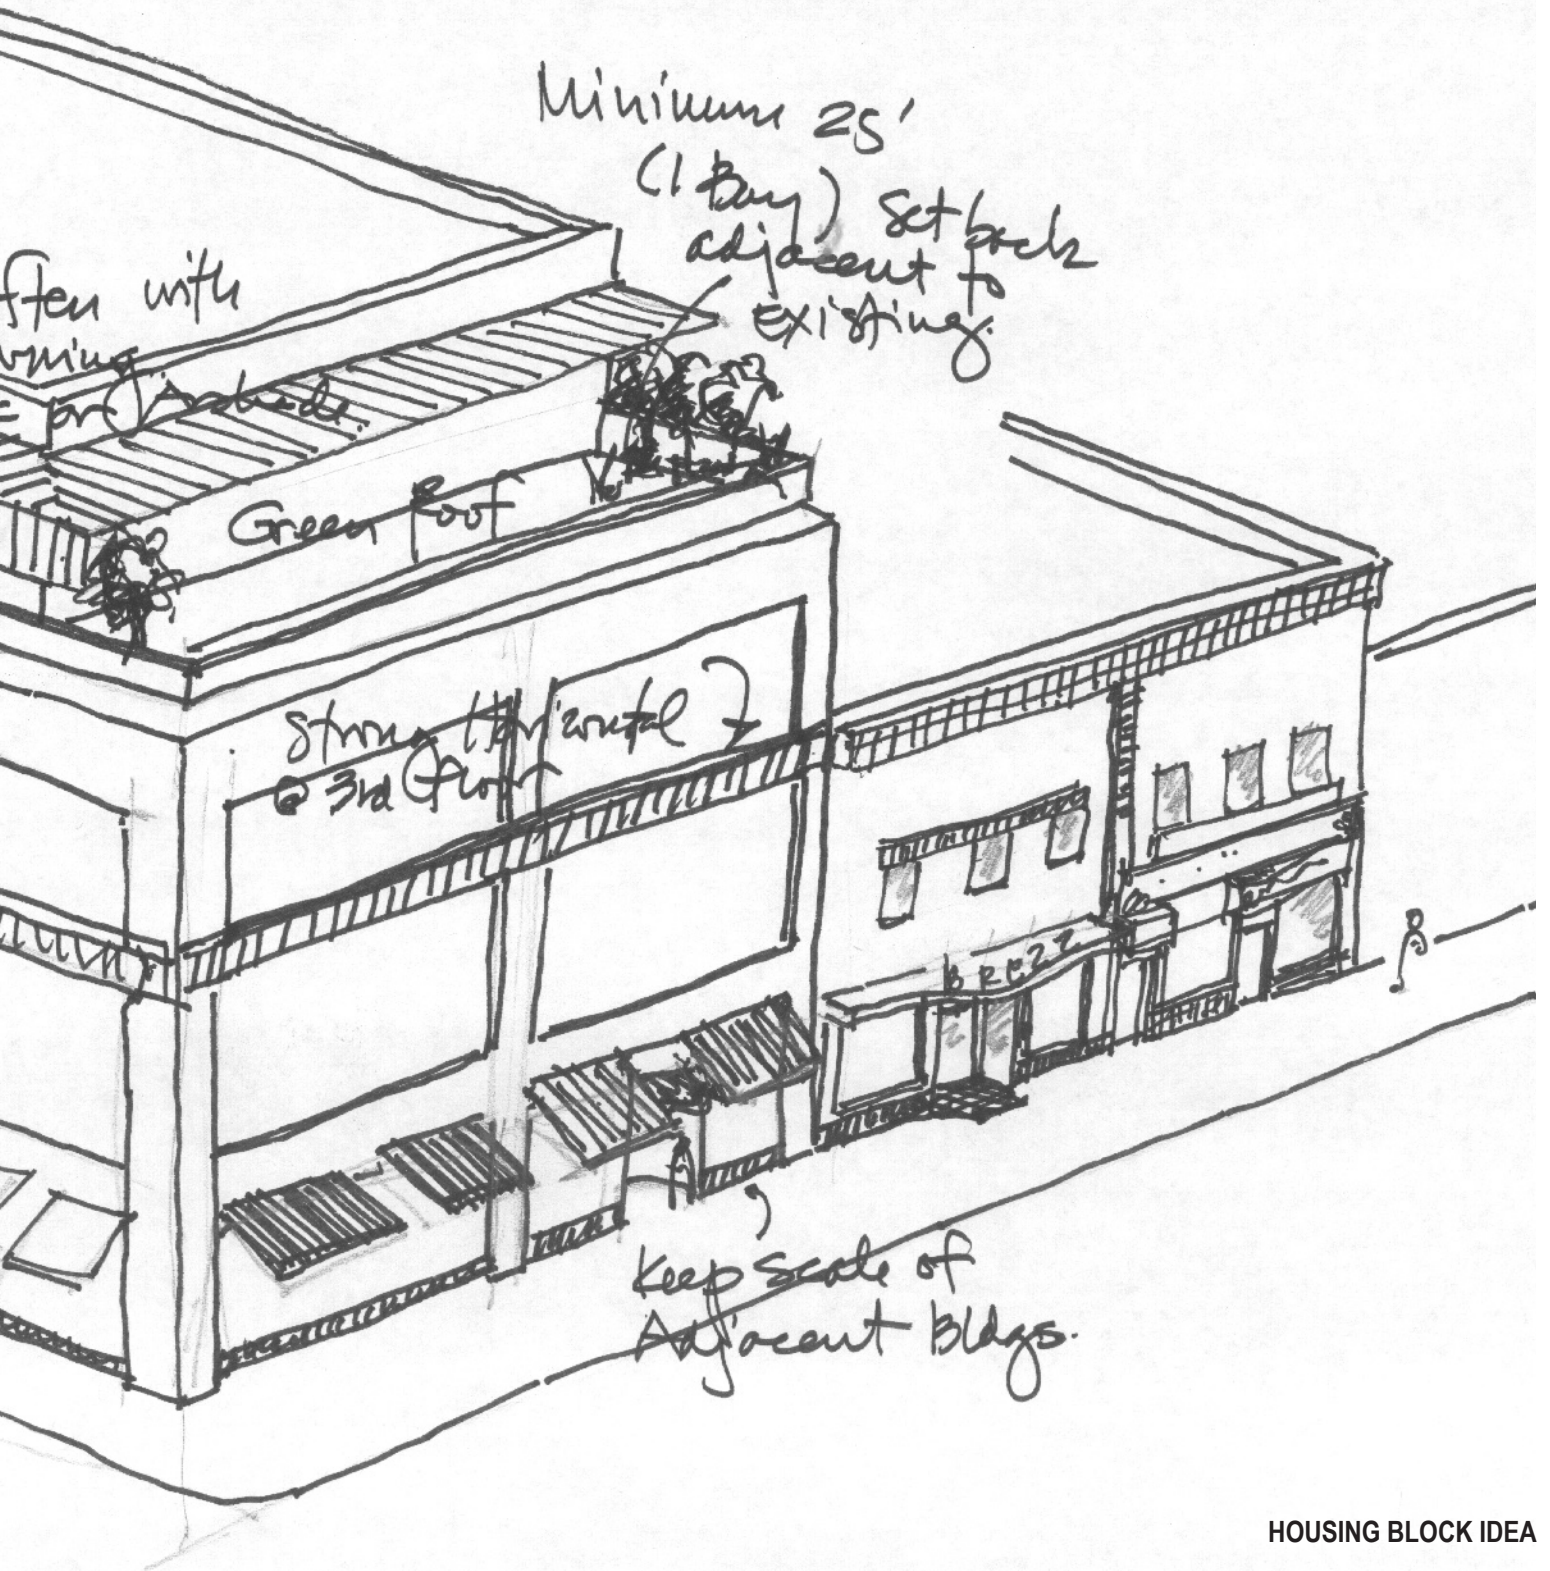 Minimum 25'
(1 Bay) Set back
adjacent to
Existing.
with
Green Roof
Strong Horizontal
@ 3rd Floor
BREZZ
Keep Scale of
Adjacent Bldgs.
HOUSING BLOCK IDEA